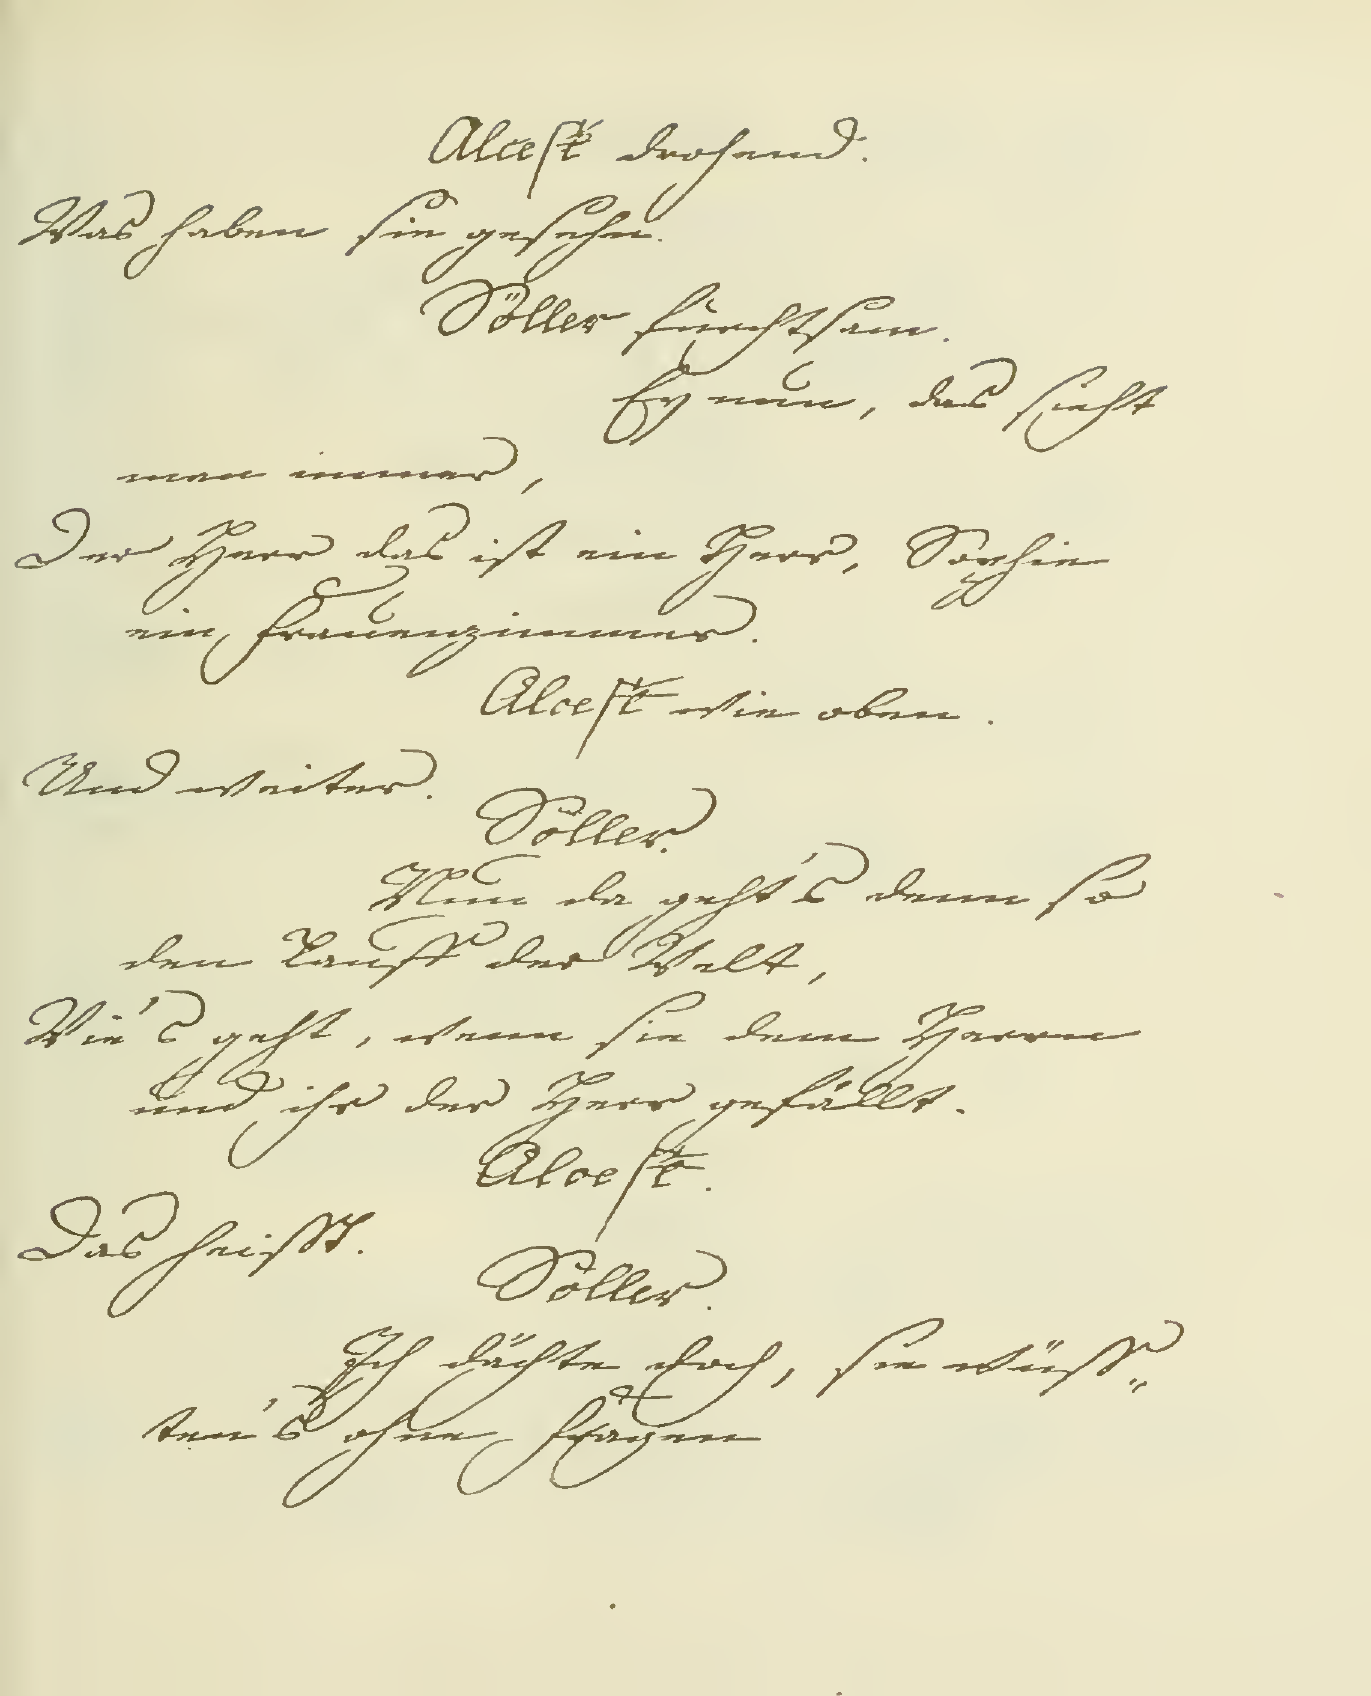 Alcest drohend.
Was haben sie gesehn.
Söller furchtsam.
Ey nun, das sieht
man immer,
Der Herr das ist ein Herr, Sophie
ein Frauenzimmer.
Alcest wie oben.
Und weiter.
Söller.
Nun da geht's denn so
den Lauff der Welt,
Wie's geht, wenn sie dem Herrn
und ihr der Herr gefällt.
Alcest.
Das heisst.
Söller.
Ich dächte doch, sie wüss„
ten's ohne fragen